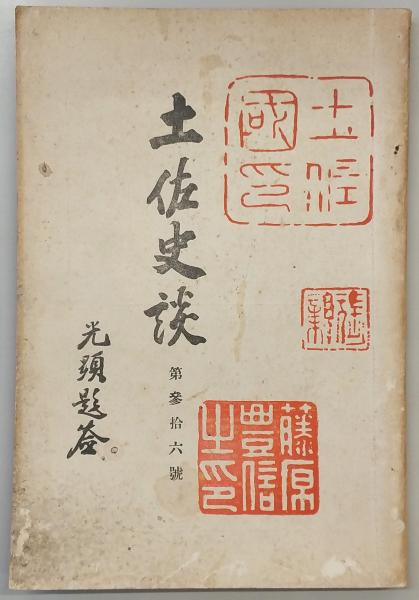 土佐
國印
藤原
豊信
之印
土佐史談
第參拾六號
光顕題簽